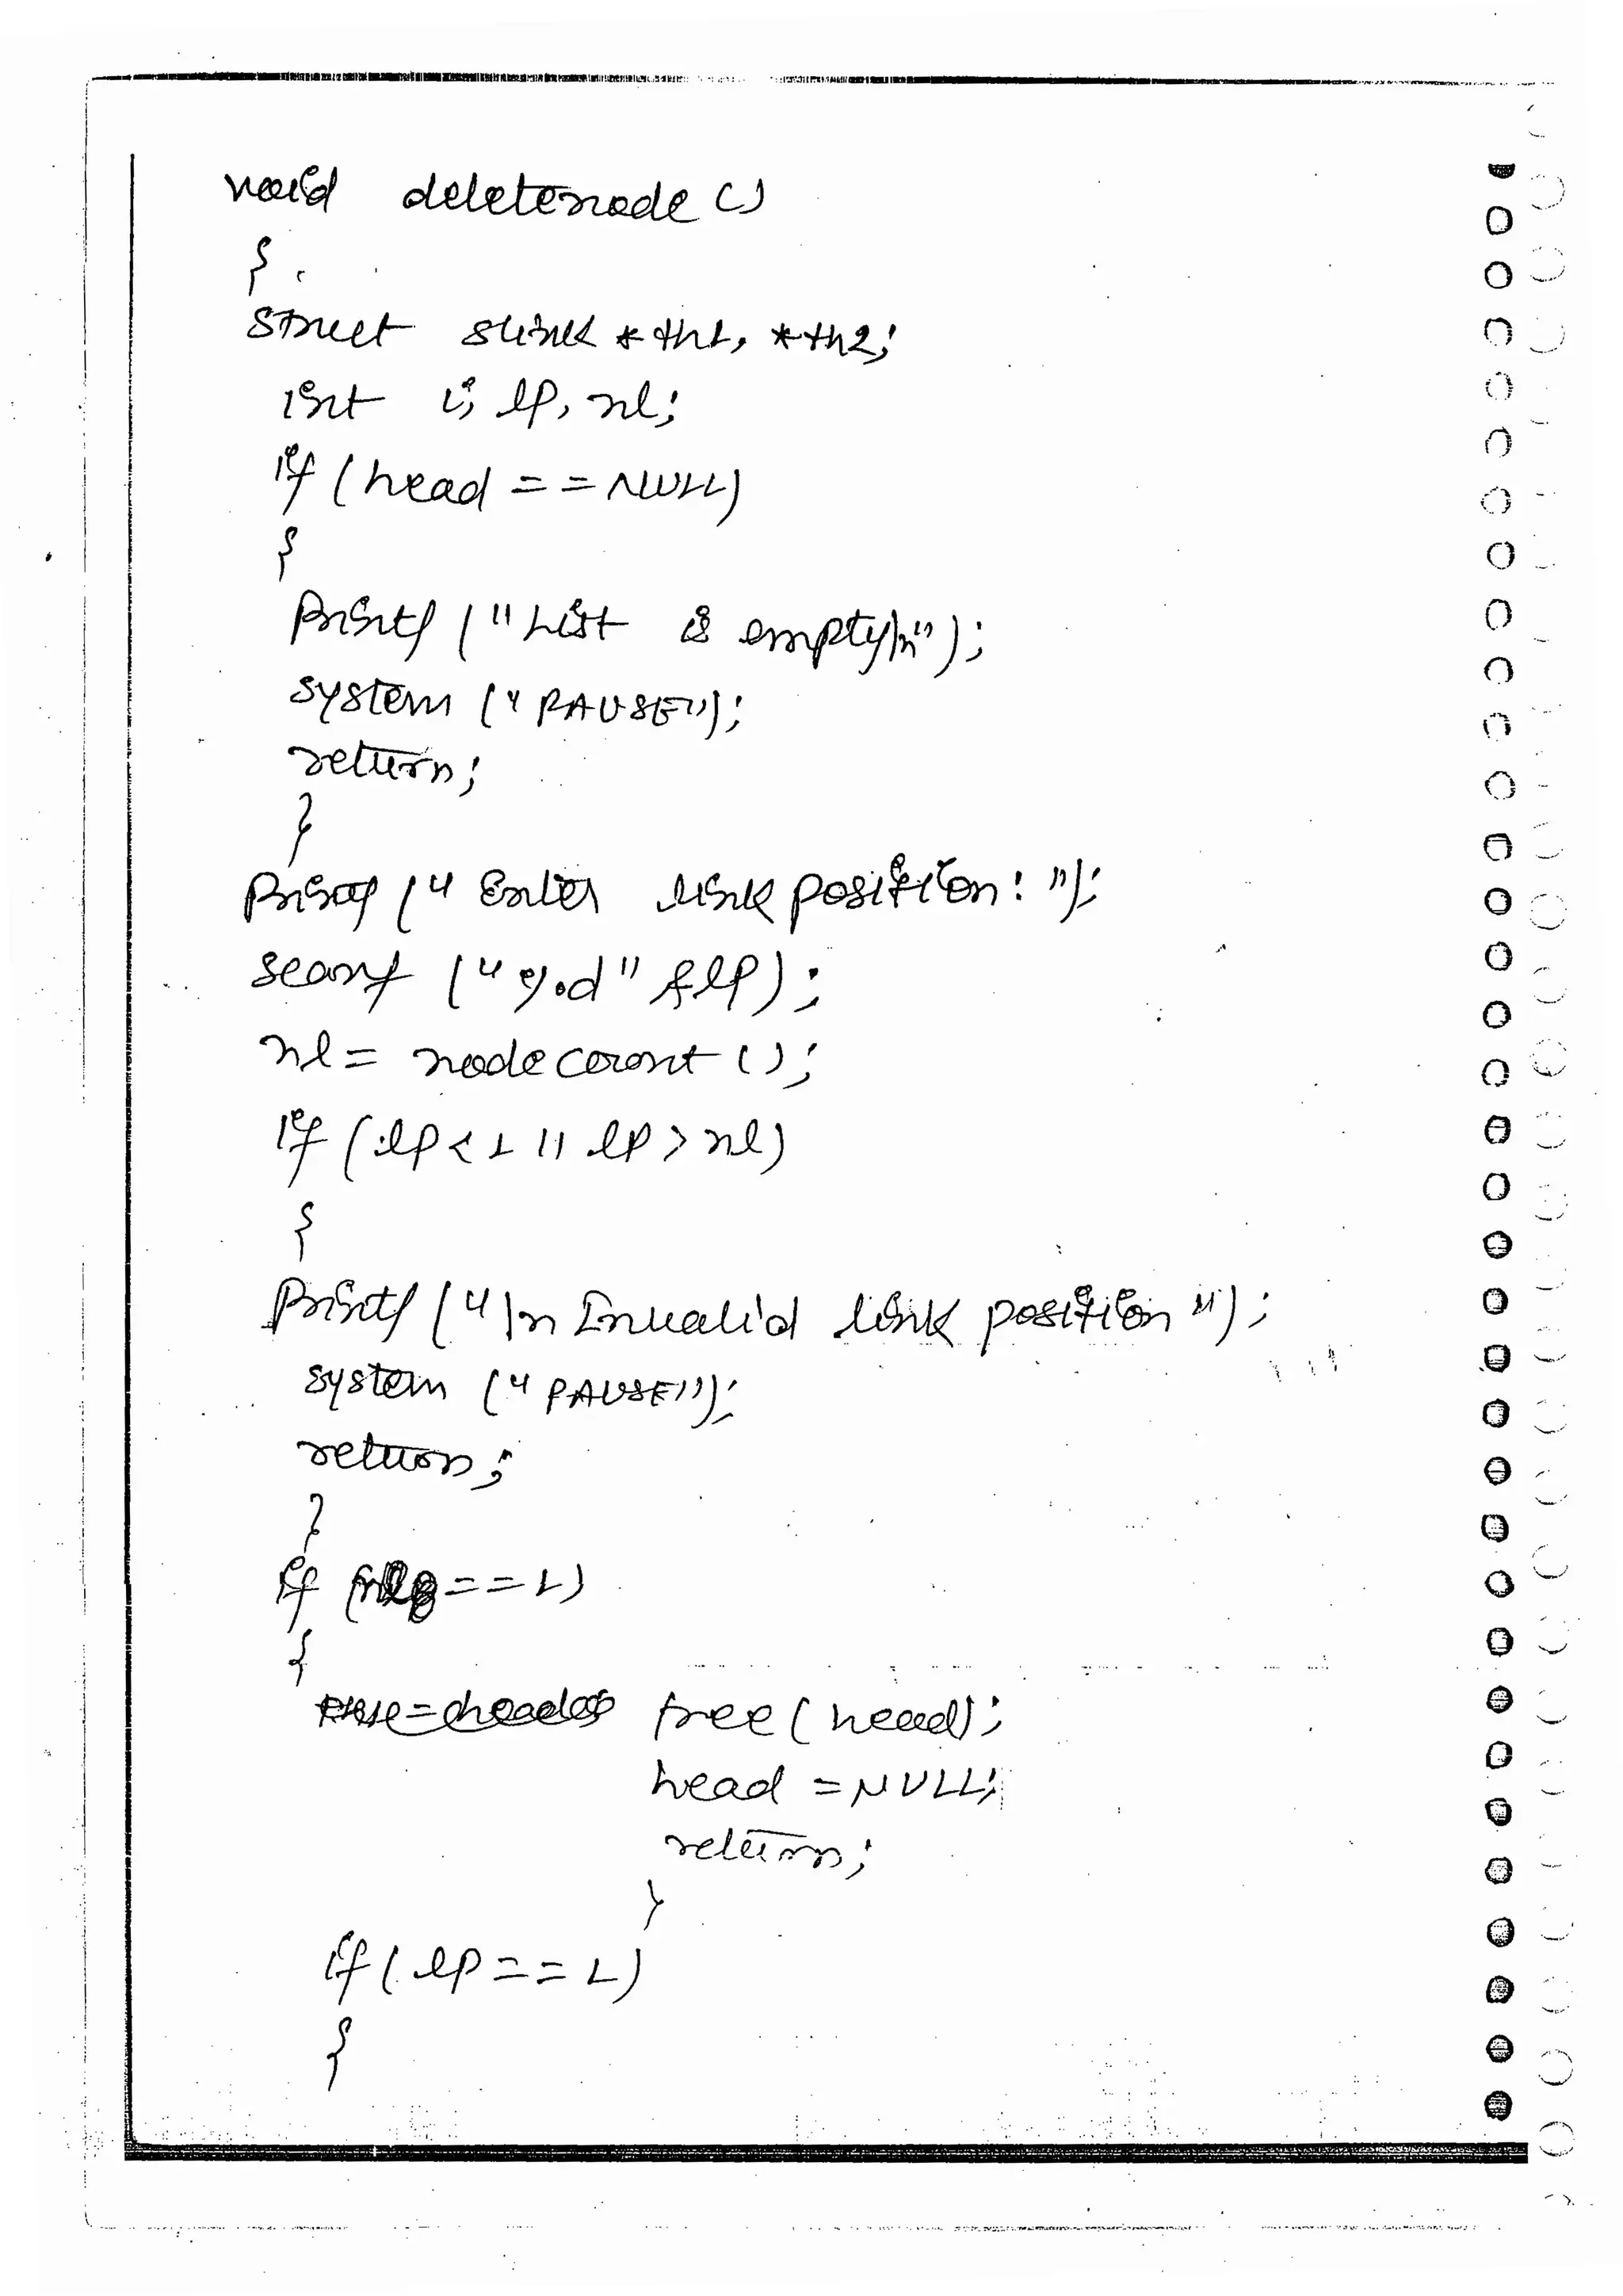 void deletenode ()
{
struct slink *th1, *th2;
int i, lp, nl;
if (head == NULL)
{
printf ("List is empty\n");
system ("PAUSE");
return;
}
printf ("Enter link position: ");
scanf ("%d" &lp);
nl = nodecount ();
if (lp < 1 || lp > nl)
{
printf ("\n Invalid link position ");
system ("PAUSE");
return;
}
if ( == 1)
{
free (head);
head = NULL;
return;
}
if ( lp == 1)
{